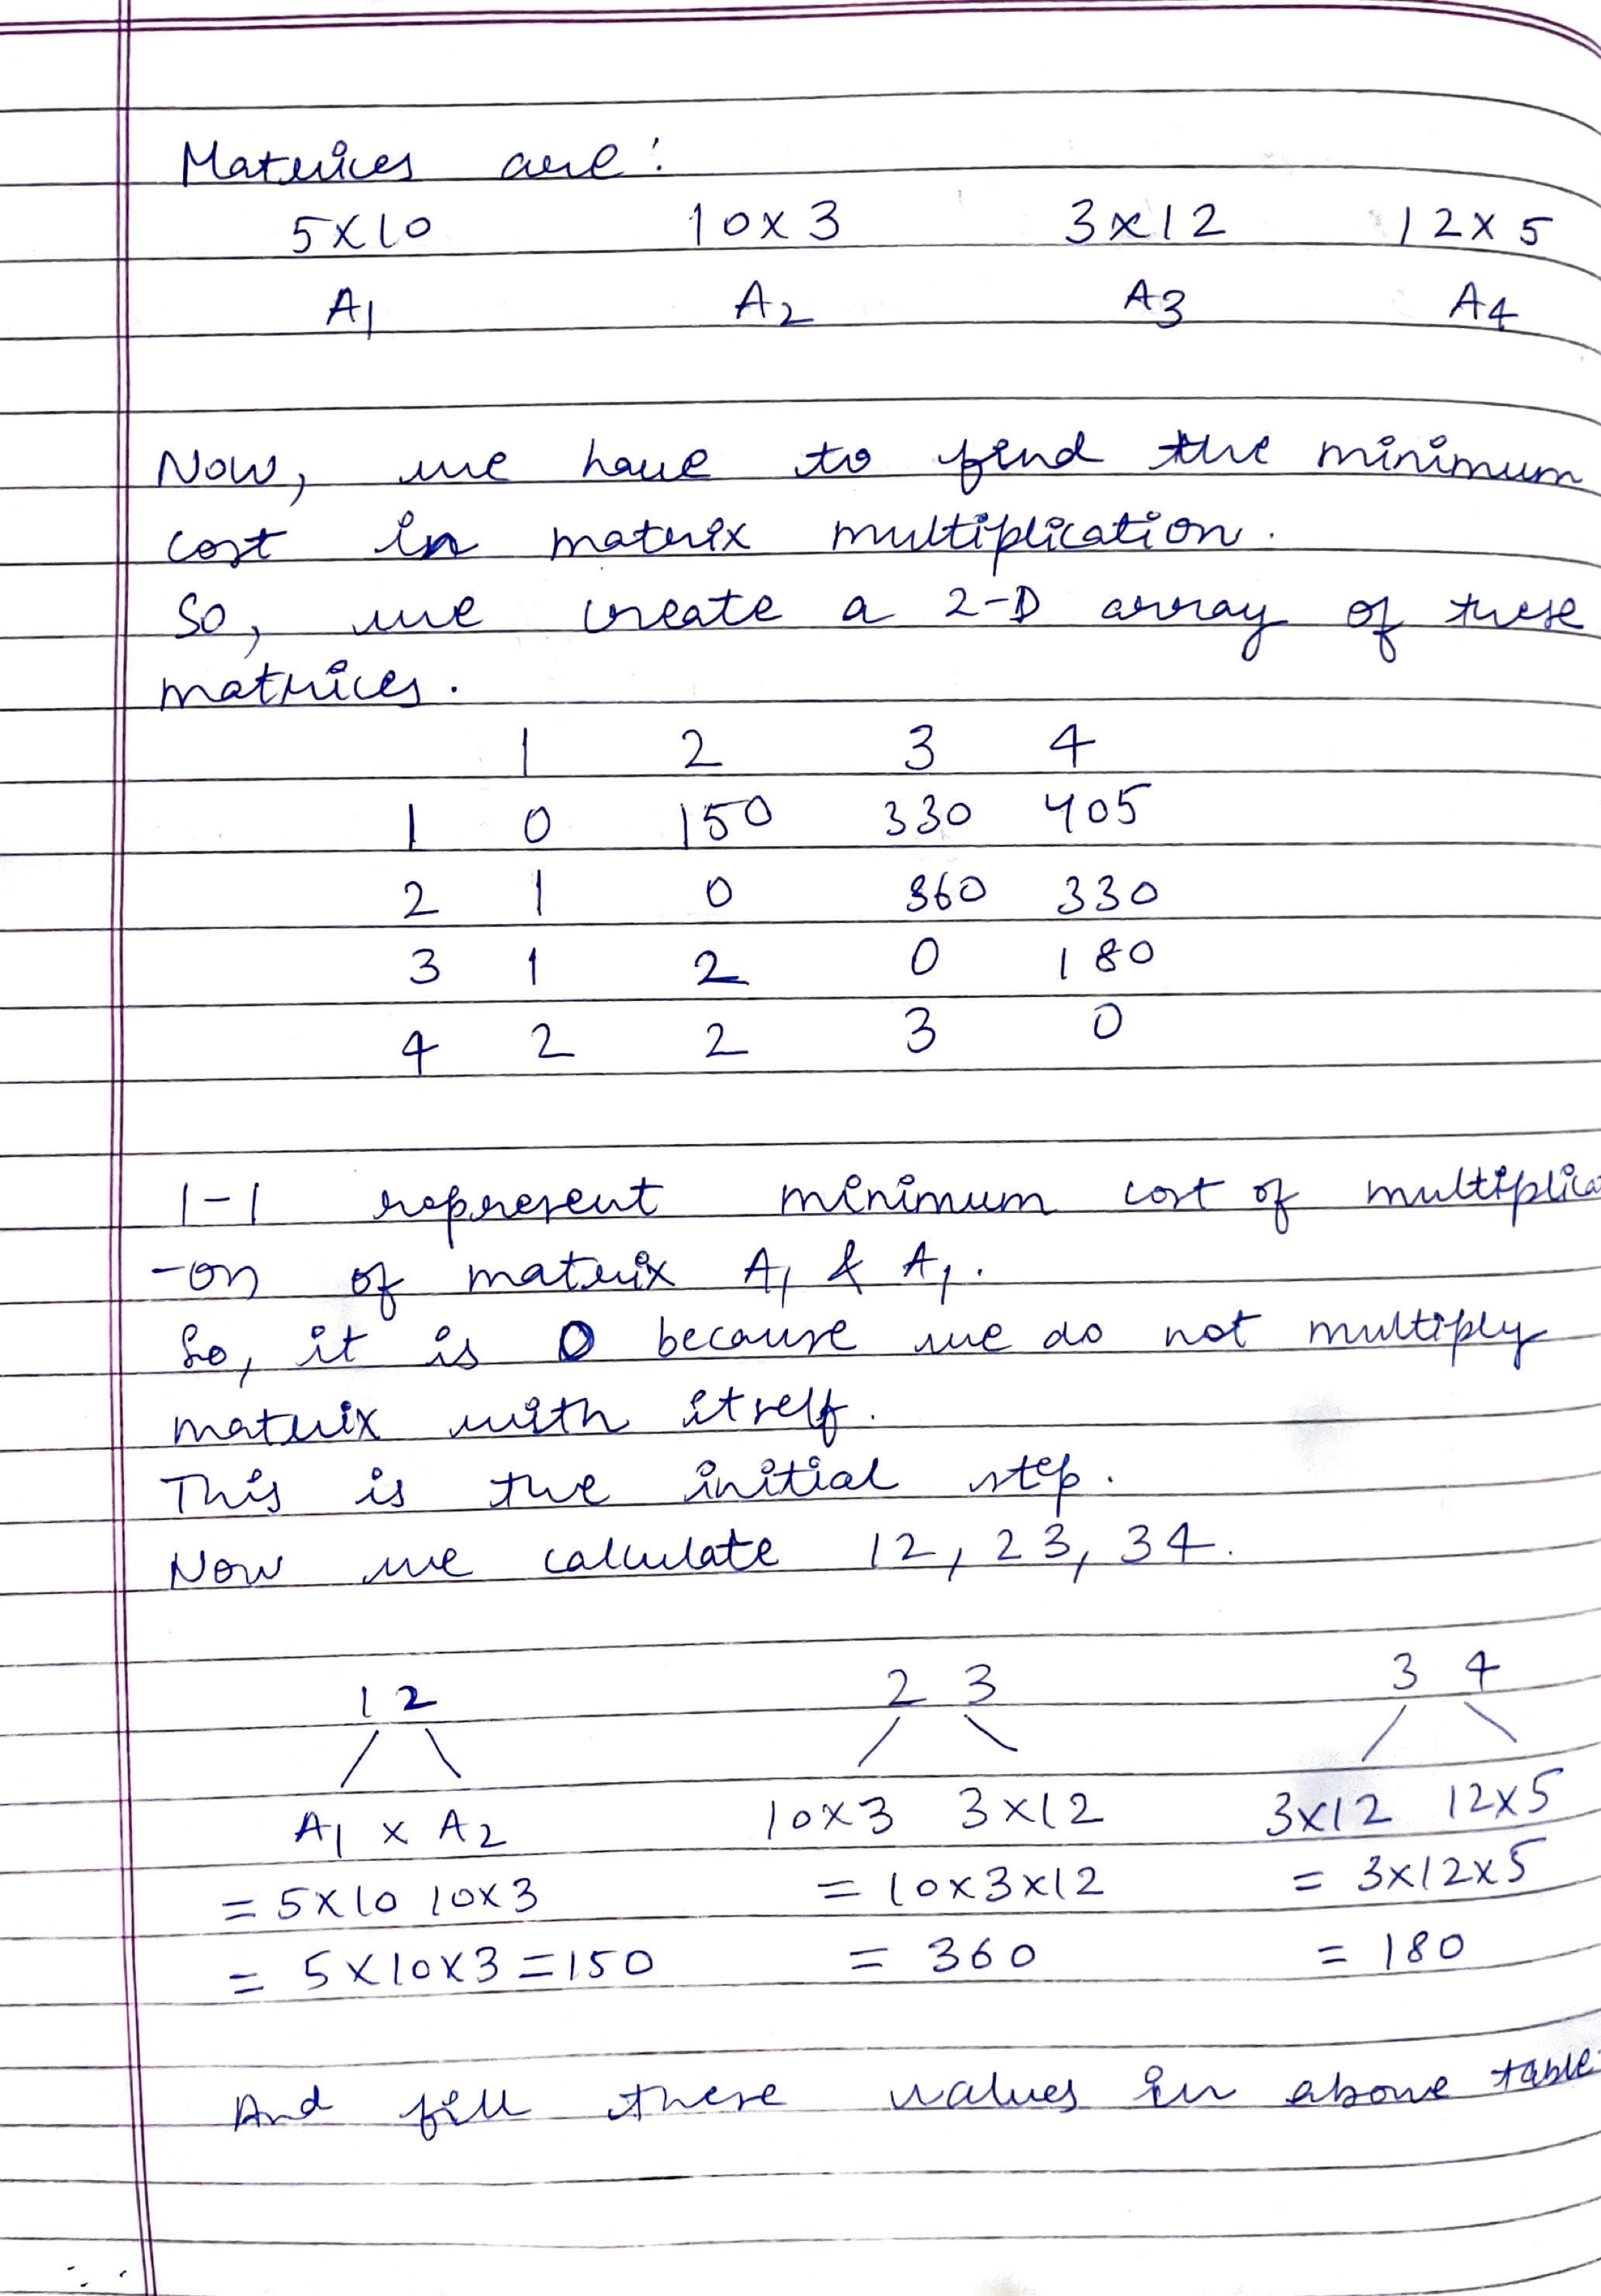 Matrices are:
5x10 10x3 3x12 12x5
A1 A2 A3 A4
Now, we have to find the minimum
cost in matrix multiplication.
So, we create a 2-D array of these
matrices.
1 2 3 4
1 0 150 330 405
2 1 0 360 330
3 1 2 0 180
4 2 2 3 0
1-1 represent minimum cost of multiplica
-on of matrix A1 & A1.
So, it is 0 because we do not multiply
matrix with itself.
This is the initial step.
Now we calculate 12, 23, 34.
12 2 3 3 4
A1 x A2 10x3 3x12 3x12 12x5
= 5x10 10x3 = 10x3x12 = 3x12x5
= 5x10x3=150 = 360 = 180
And fill these values in above table